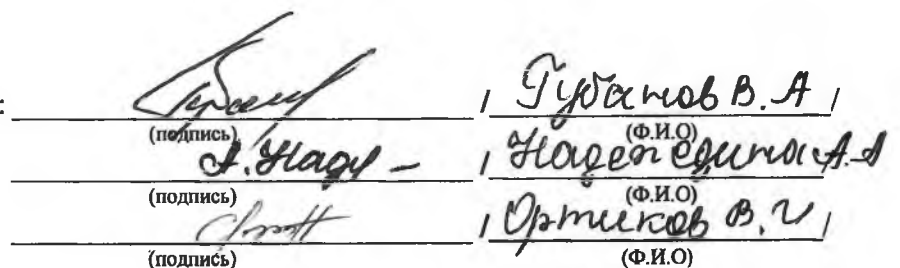 : / Губанов В. А /
(подпись) (Ф.И.О)
А. Наде - / А.А
(подпись) (Ф.И.О)
/ Ортиков В. И /
(подпись) (Ф.И.О)